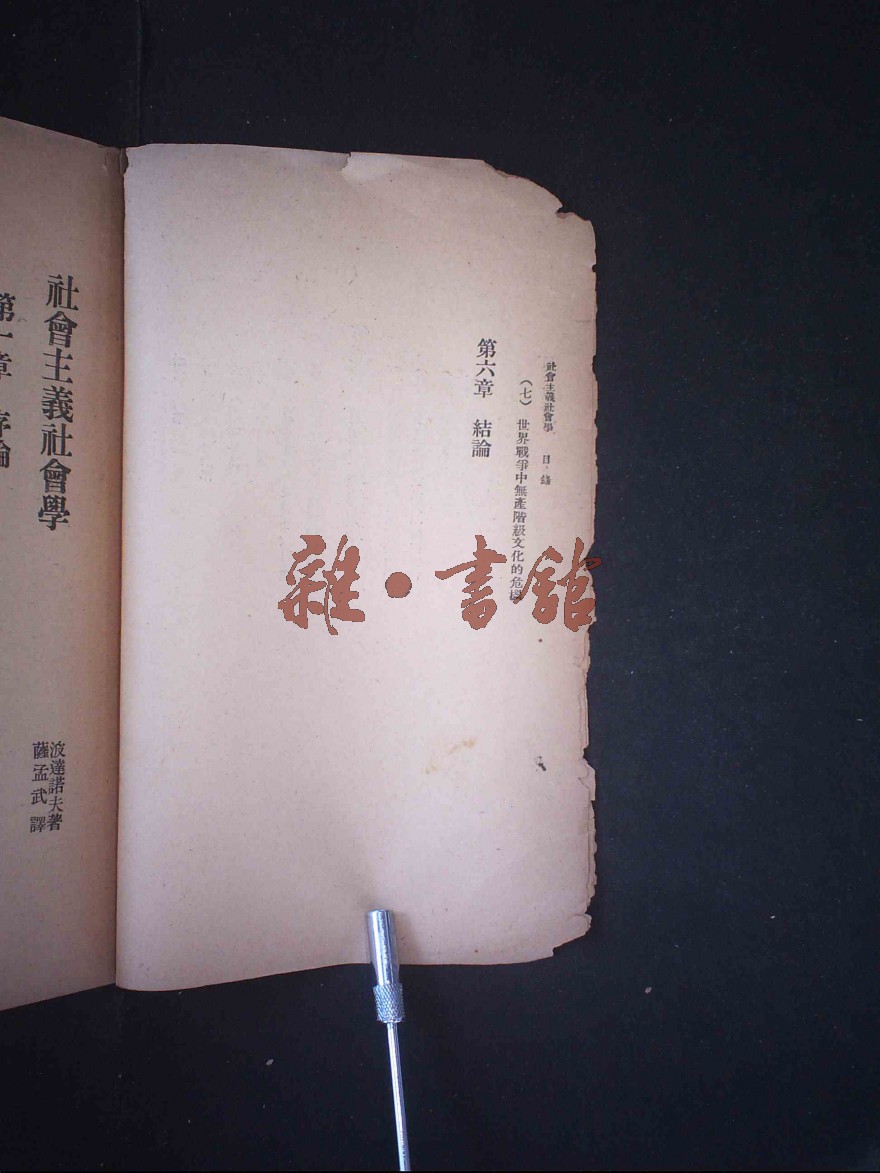 社會主義社會學　目・錄
（七）　世界戰爭中無產階級文化的危機
第六章　結論
社會主義社會學
波達諾夫著
薩孟武　譯
第一章　序論
雜・書館